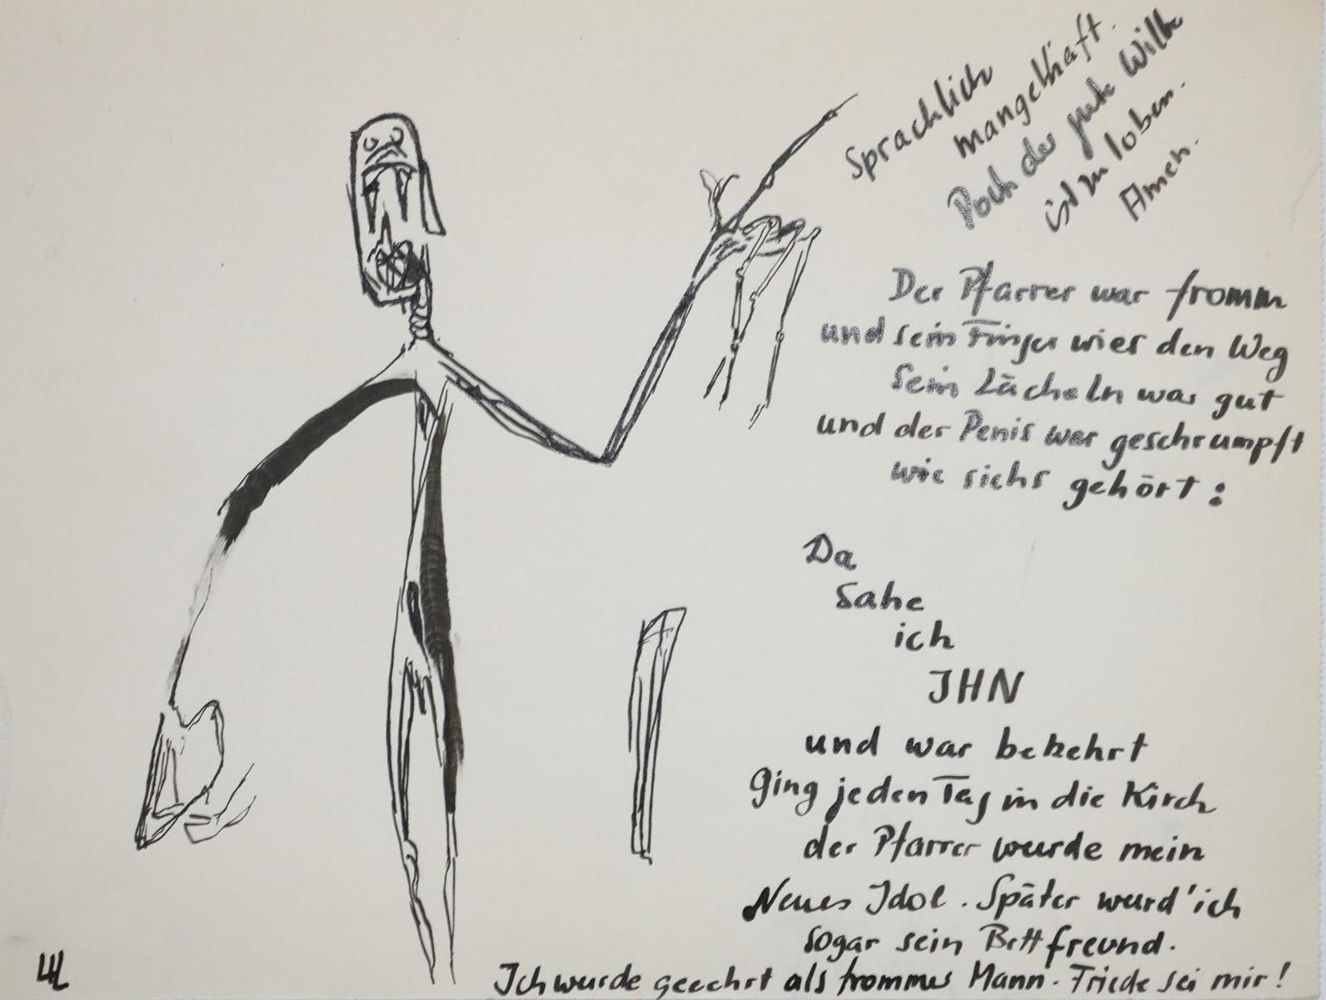 Sprachlich
mangelhaft.
Doch der gute Wille
ist zu loben.
Amen.
Der Pfarrer war fromm
und sein Finger wies den Weg
Sein Lächeln war gut
und der Penis war geschrumpft
wie sichs gehört:
Da
sahe
ich
IHN
und war bekehrt
Ging jeden Tag in die Kirch
der Pfarrer wurde mein
Neues Idol. Später wurd' ich
sogar sein Bettfreund.
Ich wurde geehrt als frommer Mann. Friede sei mir!